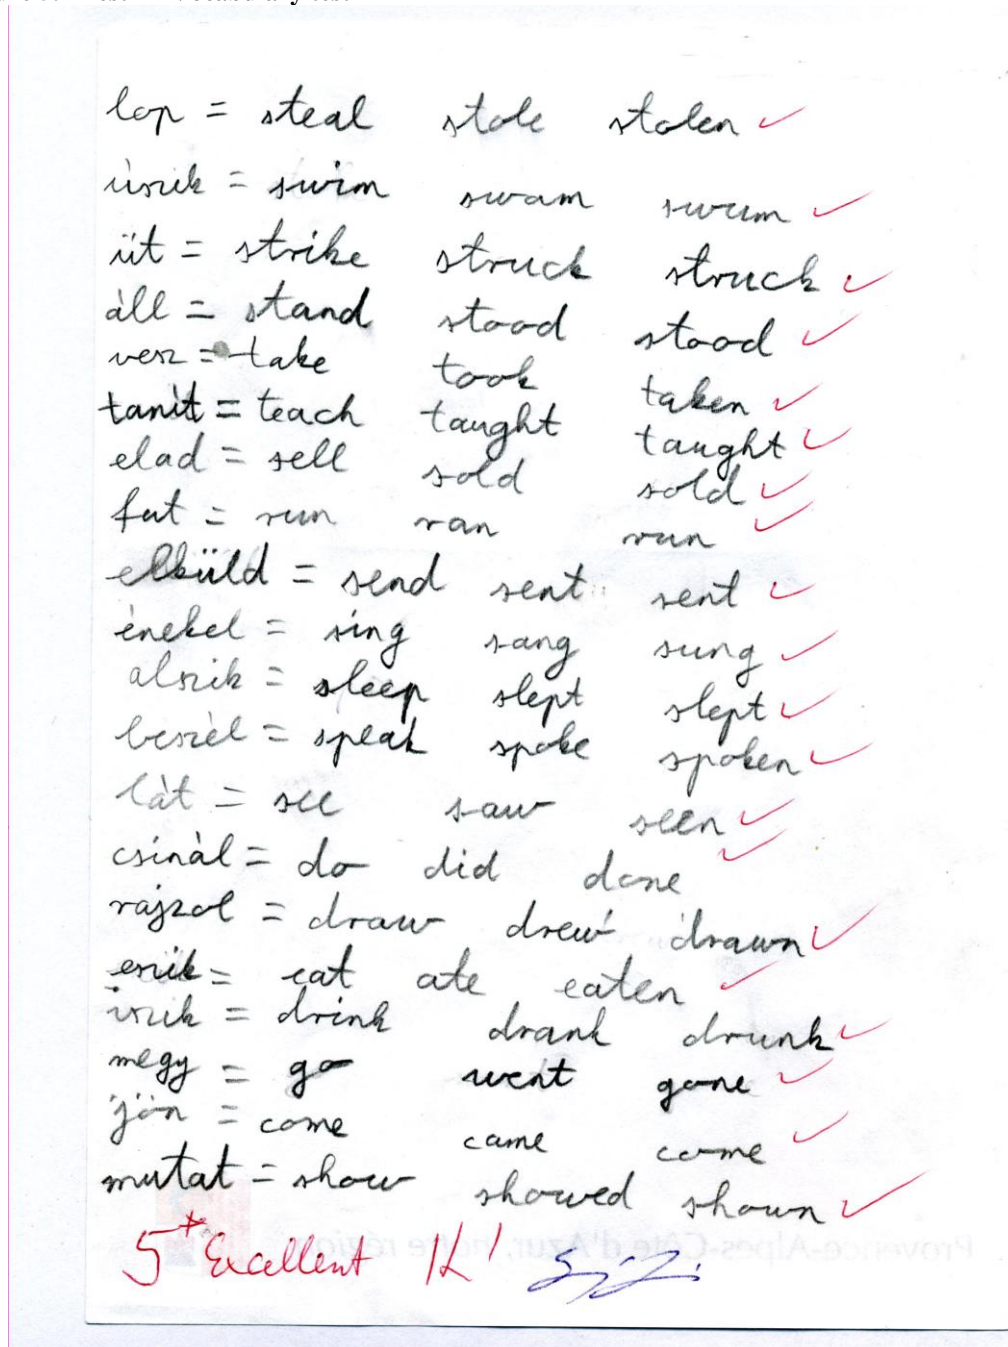 lop = steal stole stolen ✓
úszik = swim swam swum ✓
üt = strike struck struck ✓
áll = stand stood stood ✓
vesz = take took taken ✓
tanít = teach taught taught ✓
elad = sell sold sold ✓
fut = run ran run ✓
elküld = send sent sent ✓
énekel = sing sang sung ✓
alszik = sleep slept slept ✓
beszél = speak spoke spoken ✓
lát = see saw seen ✓
csinál = do did done ✓
rajzol = draw drew drawn ✓
eszik = eat ate eaten ✓
iszik = drink drank drunk ✓
megy = go went gone ✓
jön = come came come ✓
mutat = show showed shown ✓
5+ Excellent
Provence-Alpes-Côte d'Azur, notre région